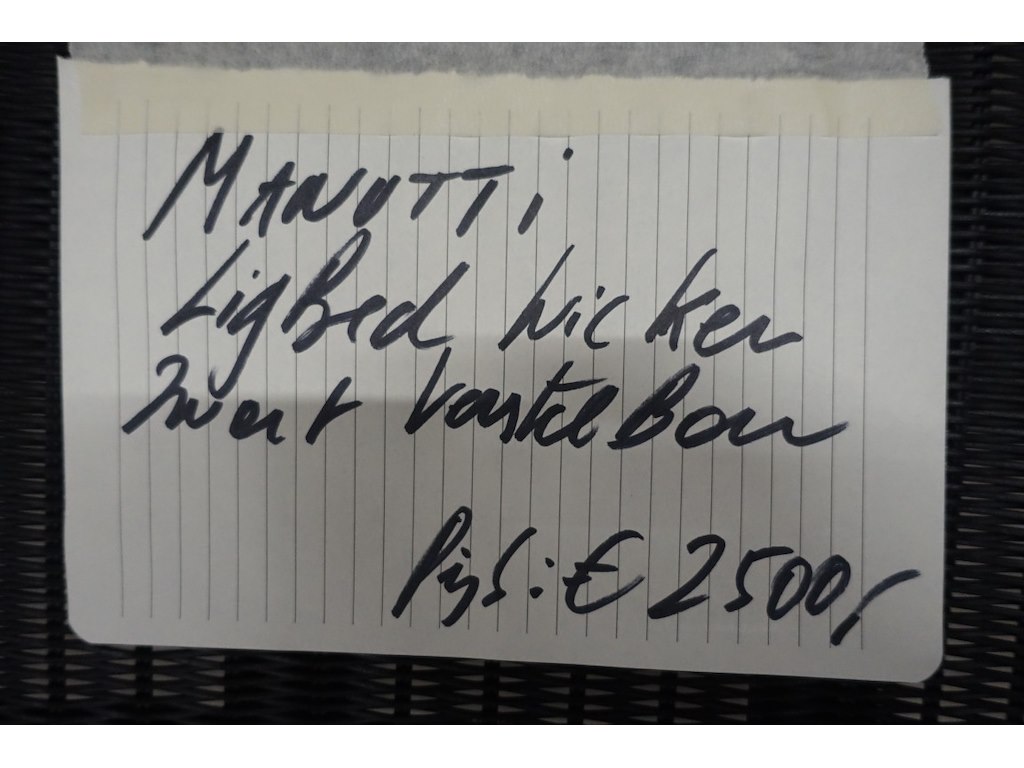 MANUTTi
LigBed Wicker
Zwart
Prijs: € 2500,-